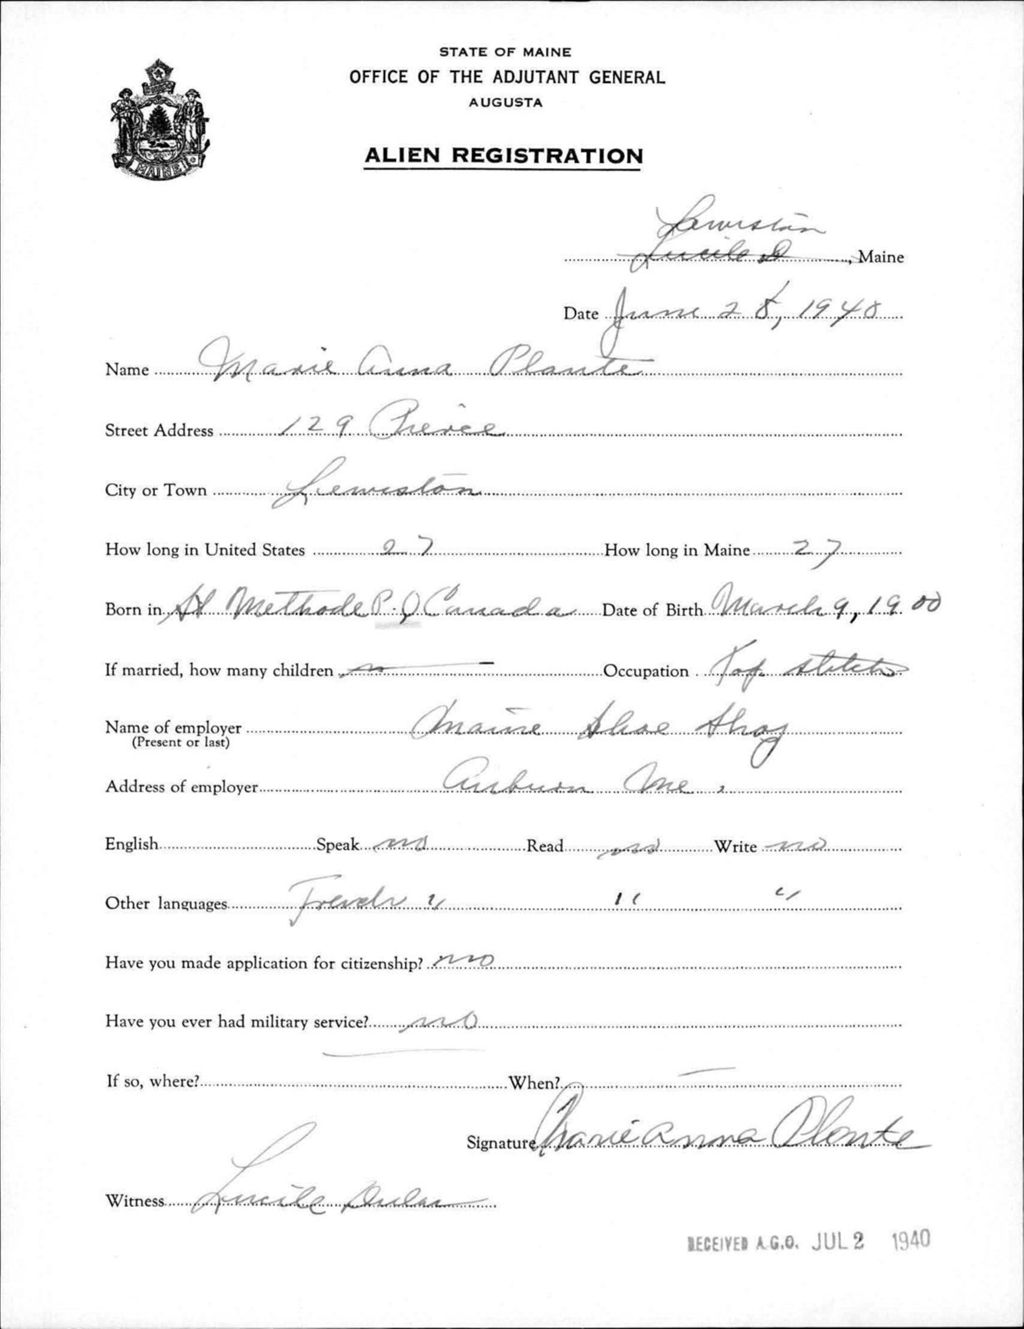 STATE OF MAINE
OFFICE OF THE ADJUTANT GENERAL
AUGUSTA
ALIEN REGISTRATION
MAINE
Lewiston
Lucile D, Maine
Date June 28, 1940
Name Marie Anna Plante
Street Address 129 Pierce
City or Town Lewiston
How long in United States 27 How long in Maine 27
Born in St Methode P.Q Canada Date of Birth March 9, 1900
If married, how many children no Occupation Top stitch
Name of employer Maine Shoe Shop
(Present or last)
Address of employer Auburn Me.
English Speak no Read no Write no
Other languages French " " "
Have you made application for citizenship? no
Have you ever had military service? no
If so, where? When?
Signature Marie Anna Plante
Witness Lucile
RECEIVED A.G.O. JUL 2 1940